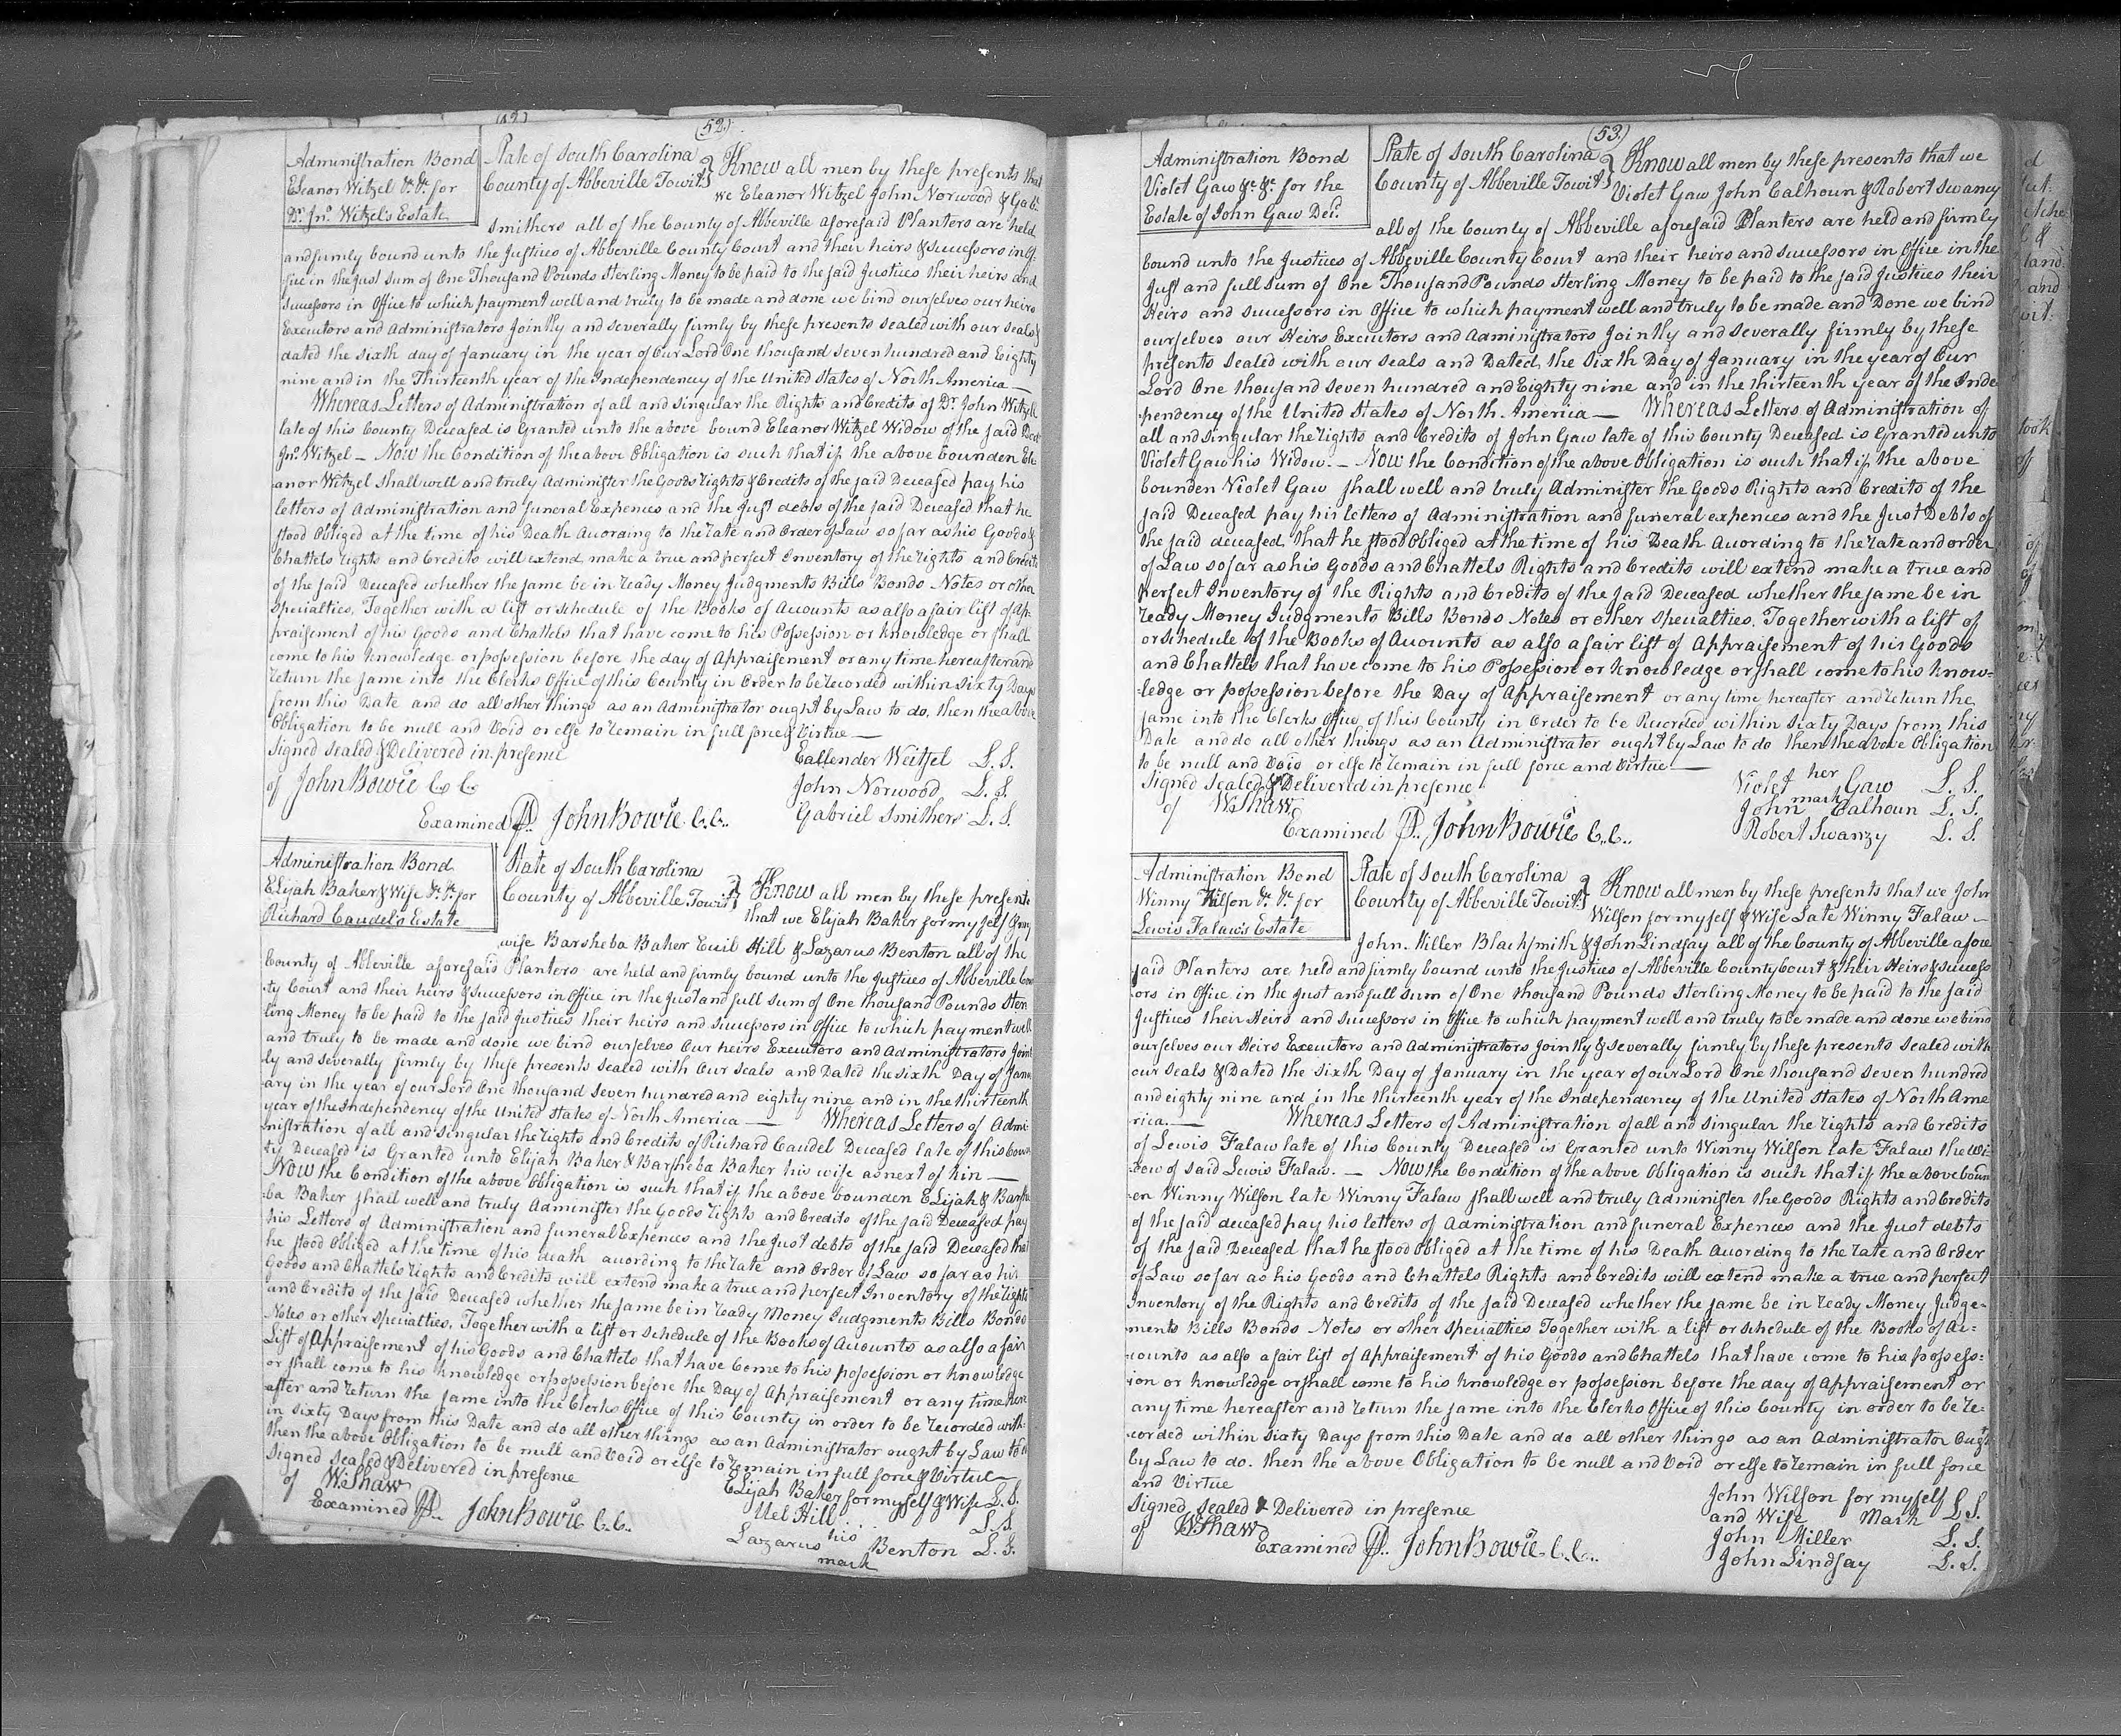 (52)
Administration Bond
Eleanor Witzel &c. &c. for
Dr. Jno. Witzel's Estate
State of South Carolina
County of Abbeville Towit
Know all men by these presents that
we Eleanor Witzel John Norwood & Gabl.
Smithers all of the County of Abbeville aforesaid Planters are held
and firmly bound unto the Justices of Abbeville County Court and their heirs & successors in Of-
fice in the Just Sum of One Thousand Pounds Sterling Money to be paid to the said Justices their heirs and
Successors in Office to which payment well and truly to be made and done we bind ourselves our heirs
Executors and Administrators Jointly and severally firmly by these presents Sealed with our seals &
dated the sixth day of January in the year of Our Lord One thousand seven hundred and Eighty
nine and in the Thirteenth year of the Independency of the United States of North America —
Whereas Letters of Administration of all and singular the Rights and Credits of Dr. John Witzell
late of this County Deceased is Granted unto the above bound Eleanor Witzel Widow of the said Decd
Jno. Witzel — Now the Condition of the above Obligation is such that if the above bounden Ele
anor Witzel Shall well and truly Administer the Goods rights & Credits of the said Deceased pay his
letters of Administration and funeral Expences and the Just debts of the said Deceased that he
stood Obliged at the time of his Death According to the rate and Order of Law so far as his Goods &
Chattels rights and Credits will extend make a true and perfect Inventory of the rights and Credits
of the said Deceased whether the same be in ready Money Judgments Bills Bonds Notes or other
Specialties, Together with a list or schedule of the Books of Accounts as also a fair list of Ap-
praisement of his Goods and Chattels that have come to his Possession or knowledge or shall
come to his knowledge or possession before the day of Appraisement or any time hereafter and
return the same into the Clerks Office of this County in Order to be recorded within sixty Days
from this Date and do all other things as an Administrator ought by Law to do, then the above
Obligation to be null and Void or else to remain in full force & Virtue —
Signed Sealed & Delivered in presence
of John Bowie C. C.
Callender Weitzel L. S.
John Norwood L. S.
Gabriel Smithers L. S.
Examined P. John Bowie C. C.
Administration Bond
Elijah Baker & Wife &c. &c. for
Richard Caudel's Estate
State of South Carolina
County of Abbeville Towit
Know all men by these presents
that we Elijah Baker for myself & my
wife Barsheba Baker Euil Hill & Lazarus Benton all of the
County of Abbeville aforesaid Planters are held and firmly bound unto the Justices of Abbeville Coun
ty Court and their heirs & Successors in Office in the Just and full sum of One thousand Pounds Ster
ling Money to be paid to the said Justices their heirs and Successors in Office to which payment well
and truly to be made and done we bind ourselves Our heirs Executors and Administrators Joint
ly and severally firmly by these presents Sealed with Our Seals and Dated the sixth Day of Janu
ary in the year of our Lord One thousand seven hundred and eighty nine and in the thirteenth
year of the Independency of the United States of North America — Whereas Letters of Admi-
nistration of all and singular the rights and Credits of Richard Caudel Deceased late of this Coun
ty Deceased is Granted unto Elijah Baker & Barsheba Baker his wife as next of kin —
Now the Condition of the above Obligation is such that if the above bounden Elijah & Barshe
ba Baker shall well and truly Administer the Goods rights and Credits of the said Deceased pay
his Letters of Administration and funeral Expences and the Just debts of the said Deceased that
he stood Obliged at the time of his death according to the rate and Order of Law so far as his
Goods and Chattels rights and Credits will extend make a true and perfect Inventory of the rights
and Credits of the said Deceased whether the same be in ready Money Judgments Bills Bonds
Notes or other specialties, Together with a list or Schedule of the Books of Accounts as also a fair
List of Appraisement of his Goods and Chattels that have Come to his possession or knowledge
or shall come to his knowledge or possession before the Day of Appraisement or any time here
after and return the same into the Clerks Office of this County in order to be recorded with-
in sixty Days from this Date and do all other things as an Administrator ought by Law to do
then the above Obligation to be null and Void or else to remain in full force & Virtue —
Signed Sealed & Delivered in presence
of W. Shaw
Elijah Baker for myself & Wife L. S.
Uel Hill L. S.
Lazarus his mark Benton L. S.
Examined P. John Bowie C. C.
(53)
Administration Bond
Violet Gaw &c. &c. for the
Estate of John Gaw Decd.
State of South Carolina
County of Abbeville Towit
Know all men by these presents that we
Violet Gaw John Calhoun & Robert Swancy
all of the County of Abbeville aforesaid Planters are held and firmly
bound unto the Justices of Abbeville County Court and their heirs and successors in Office in the
Just and full sum of One Thousand Pounds Sterling Money to be paid to the said Justices their
Heirs and successors in Office to which payment well and truly to be made and Done we bind
ourselves our Heirs Executors and Administrators Jointly and severally firmly by these
presents Sealed with our seals and Dated the Sixth Day of January in the year of Our
Lord One thousand seven hundred and Eighty nine and in the thirteenth year of the Inde
pendency of the United States of North America — Whereas Letters of Administration of
all and singular the rights and Credits of John Gaw late of this County Deceased is Granted unto
Violet Gaw his Widow. — Now the Condition of the above Obligation is such that if the above
bounden Violet Gaw shall well and truly Administer the Goods Rights and Credits of the
said Deceased pay his letters of Administration and funeral expences and the Just Debts of
the said deceased, that he stood Obliged at the time of his Death According to the rate and order
of Law so far as his Goods and Chattels Rights and Credits will extend make a true and
perfect Inventory of the Rights and Credits of the said Deceased whether the same be in
ready Money Judgments Bills Bonds Notes or other Specialties, Together with a list of
or schedule of the Books of Accounts as also a fair list of Appraisement of his Goods
and Chattels that have come to his Possession or knowledge or shall come to his know-
ledge or possession before the Day of Appraisement or any time hereafter and return the
same into the Clerks Office of this County in Order to be Recorded within sixty Days from this
Date and do all other things as an Administrator ought by Law to do then the above Obligation
to be null and Void or else to remain in full force and Virtue —
Signed Sealed & Delivered in presence
of W. Shaw
Violet her mark Gaw L. S.
John Calhoun L. S.
Robert Swanzy L. S.
Examined P. John Bowie C. C.
Administration Bond
Winny Wilson &c. &c. for
Lewis Falaw's Estate
State of South Carolina
County of Abbeville Towit
Know all men by these presents that we John
Wilson for myself & Wife Late Winny Falaw —
John Miller Blacksmith & John Lindsay all of the County of Abbeville afore
said Planters are held and firmly bound unto the Justices of Abbeville County Court & their Heirs & success
ors in Office in the Just and full sum of One thousand Pounds Sterling Money to be paid to the said
Justices their Heirs and successors in Office to which payment well and truly to be made and done we bind
ourselves our Heirs Executors and Administrators Jointly & severally firmly by these presents Sealed with
our seals & Dated the sixth Day of January in the year of our Lord One thousand seven hundred
and eighty nine and in the thirteenth year of the Independency of the United States of North Ame
rica. — Whereas Letters of Administration of all and singular the rights and Credits
of Lewis Falaw late of this County Deceased is Granted unto Winny Wilson late Falaw the Wi-
dow of said Lewis Falaw. — Now the Condition of the above Obligation is such that if the above bound
en Winny Wilson late Winny Falaw shall well and truly Administer the Goods Rights and Credits
of the said deceased pay his letters of Administration and funeral Expences and the Just debts
of the said Deceased that he stood Obliged at the time of his Death According to the rate and Order
of Law so far as his Goods and Chattels Rights and Credits will extend make a true and perfect
Inventory of the Rights and Credits of the said Deceased whether the same be in ready Money Judge-
ments Bills Bonds Notes or other specialties Together with a list or schedule of the Books of Ac=
counts as also a fair list of Appraisement of his Goods and Chattels that have come to his possess=
ion or knowledge or shall come to his knowledge or possession before the day of Appraisement or
any time hereafter and return the same into the Clerks Office of this County in order to be re-
corded within sixty Days from this Date and do all other things as an Administrator Ought
by Law to do. then the above Obligation to be null and Void or else to remain in full force
and Virtue
Signed, Sealed & Delivered in presence
of W Shaw
John Wilson for myself L S.
and Wife Mark
John Miller L. S.
John Lindsay L. S.
Examined P. John Bowie C. C.